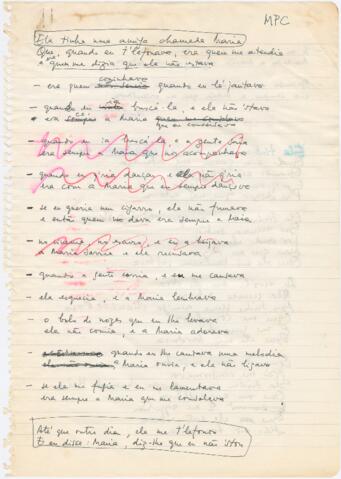 MPC
Ela tinha uma amiga chamada Maria
Que, quando eu t'lefonava, era quem me atendia
e quem me dizia que ela não estava
cozinhava
— era quem quando eu lá jantava
— quando eu ia buscá-la, e ela não 'stava
era você a Maria
que eu conversava
— quando eu ia buscá-la, e a gente saía
era sempre a Maria que nos acompanhava
— quando eu queria dançar, e ela não queria
era com a Maria que eu sempre dançava
— se eu queria um cigarro, ela não fumava
e então quem mo dava era sempre a Maria
— no escuro, e eu a beijava
a Maria sorria e ela recusava
— quando a gente corria, e eu me cansava
— ela esquecia, e a Maria lembrava
— o bolo de nozes que eu lhe levava
ela não comia, e a Maria adorava
— quando eu lhe cantava uma melodia
a Maria ouvia, e ela não ligava
— se ela me fugia e eu me lamentava
era sempre a Maria que me consolava
Até que outro dia, ela me t'lefonou
E eu disse: Maria, diz-lhe que eu não 'stou